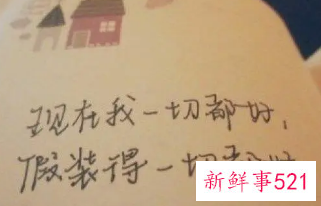 现在我一切都好，
假装得一切都好
新鲜事521